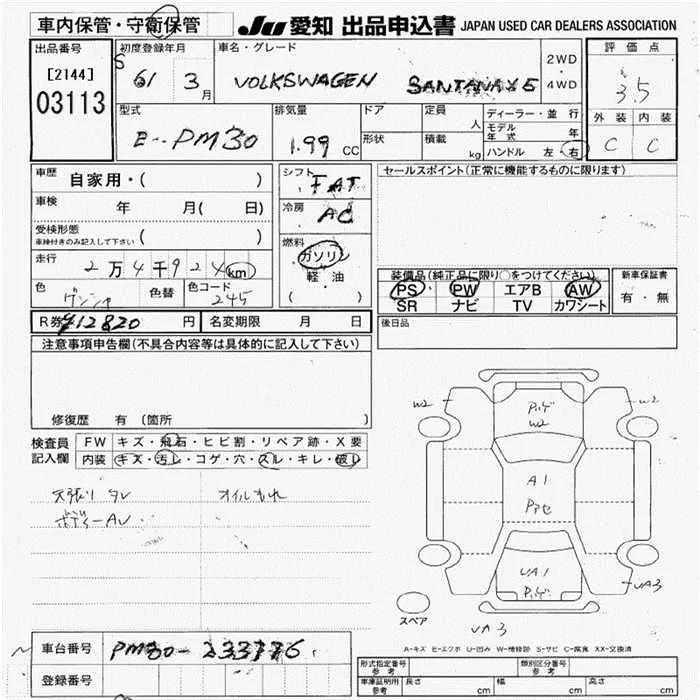 車内保管・守衛保管
JU 愛知 出品申込書 JAPAN USED CAR DEALERS ASSOCIATION
出品番号
[2144]
03113
初度登録年月
S 61 3 月
車名・グレード
VOLKSWAGEN SANTANA X5
2WD
・
4WD
評価点
3.5
外装 内装
C C
型式
E-PM30
排気量
1.99 CC
ドア
形状
定員
人
積載
kg
ディーラー・並行
モデル年式 年
ハンドル 左・右
車歴 自家用・( )
車検 年 月( 日)
受検形態
車検付きのみ記入して下さい ( )
走行
2万4千924km
色
色替
色コード
245
シフト
FAT
冷房
AC
燃料
ガソリン
軽・油
( )
セールスポイント(正常に機能するものに限ります)
装備品(純正品に限り○をつけてください)
PS PW エアB AW
SR ナビ TV カワシート
新車保証書
有・無
R券 ¥12820 円 名変期限 月 日
後日品
注意事項申告欄(不具合内容等は具体的に記入して下さい)
修復歴 有 (箇所 )
検査員
記入欄
FW キズ・飛石・ヒビ割・リペア跡・X要
内装 キズ・汚レ・コゲ・穴・スレ・キレ・破レ
天張り タレ
オイルもれ
ボディーAV
W2
W2
W2
A1
UA1
UA3
UA3
スペア
A-キズ E-エクボ U-凹み W-補修跡 S-サビ C-腐食 XX-交換済
車台番号 PM30-233776
登録番号
形式指定番号
参考
類別区分番号
参考
車庫証明用
参考
長さ cm 幅 cm 高さ cm